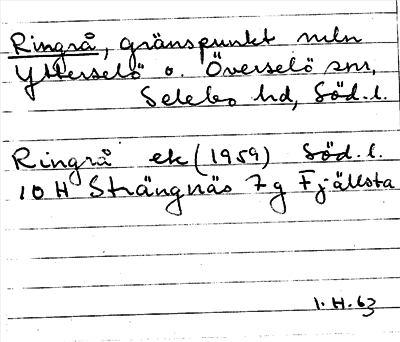 Ringrå, gränspunkt mln
Ytterselö o. Överselö snr,
Selebo hd, Söd. l.
Ringrå ek (1959) Söd. l.
10 H Strängnäs 7g Fjällsta
1. H. 63